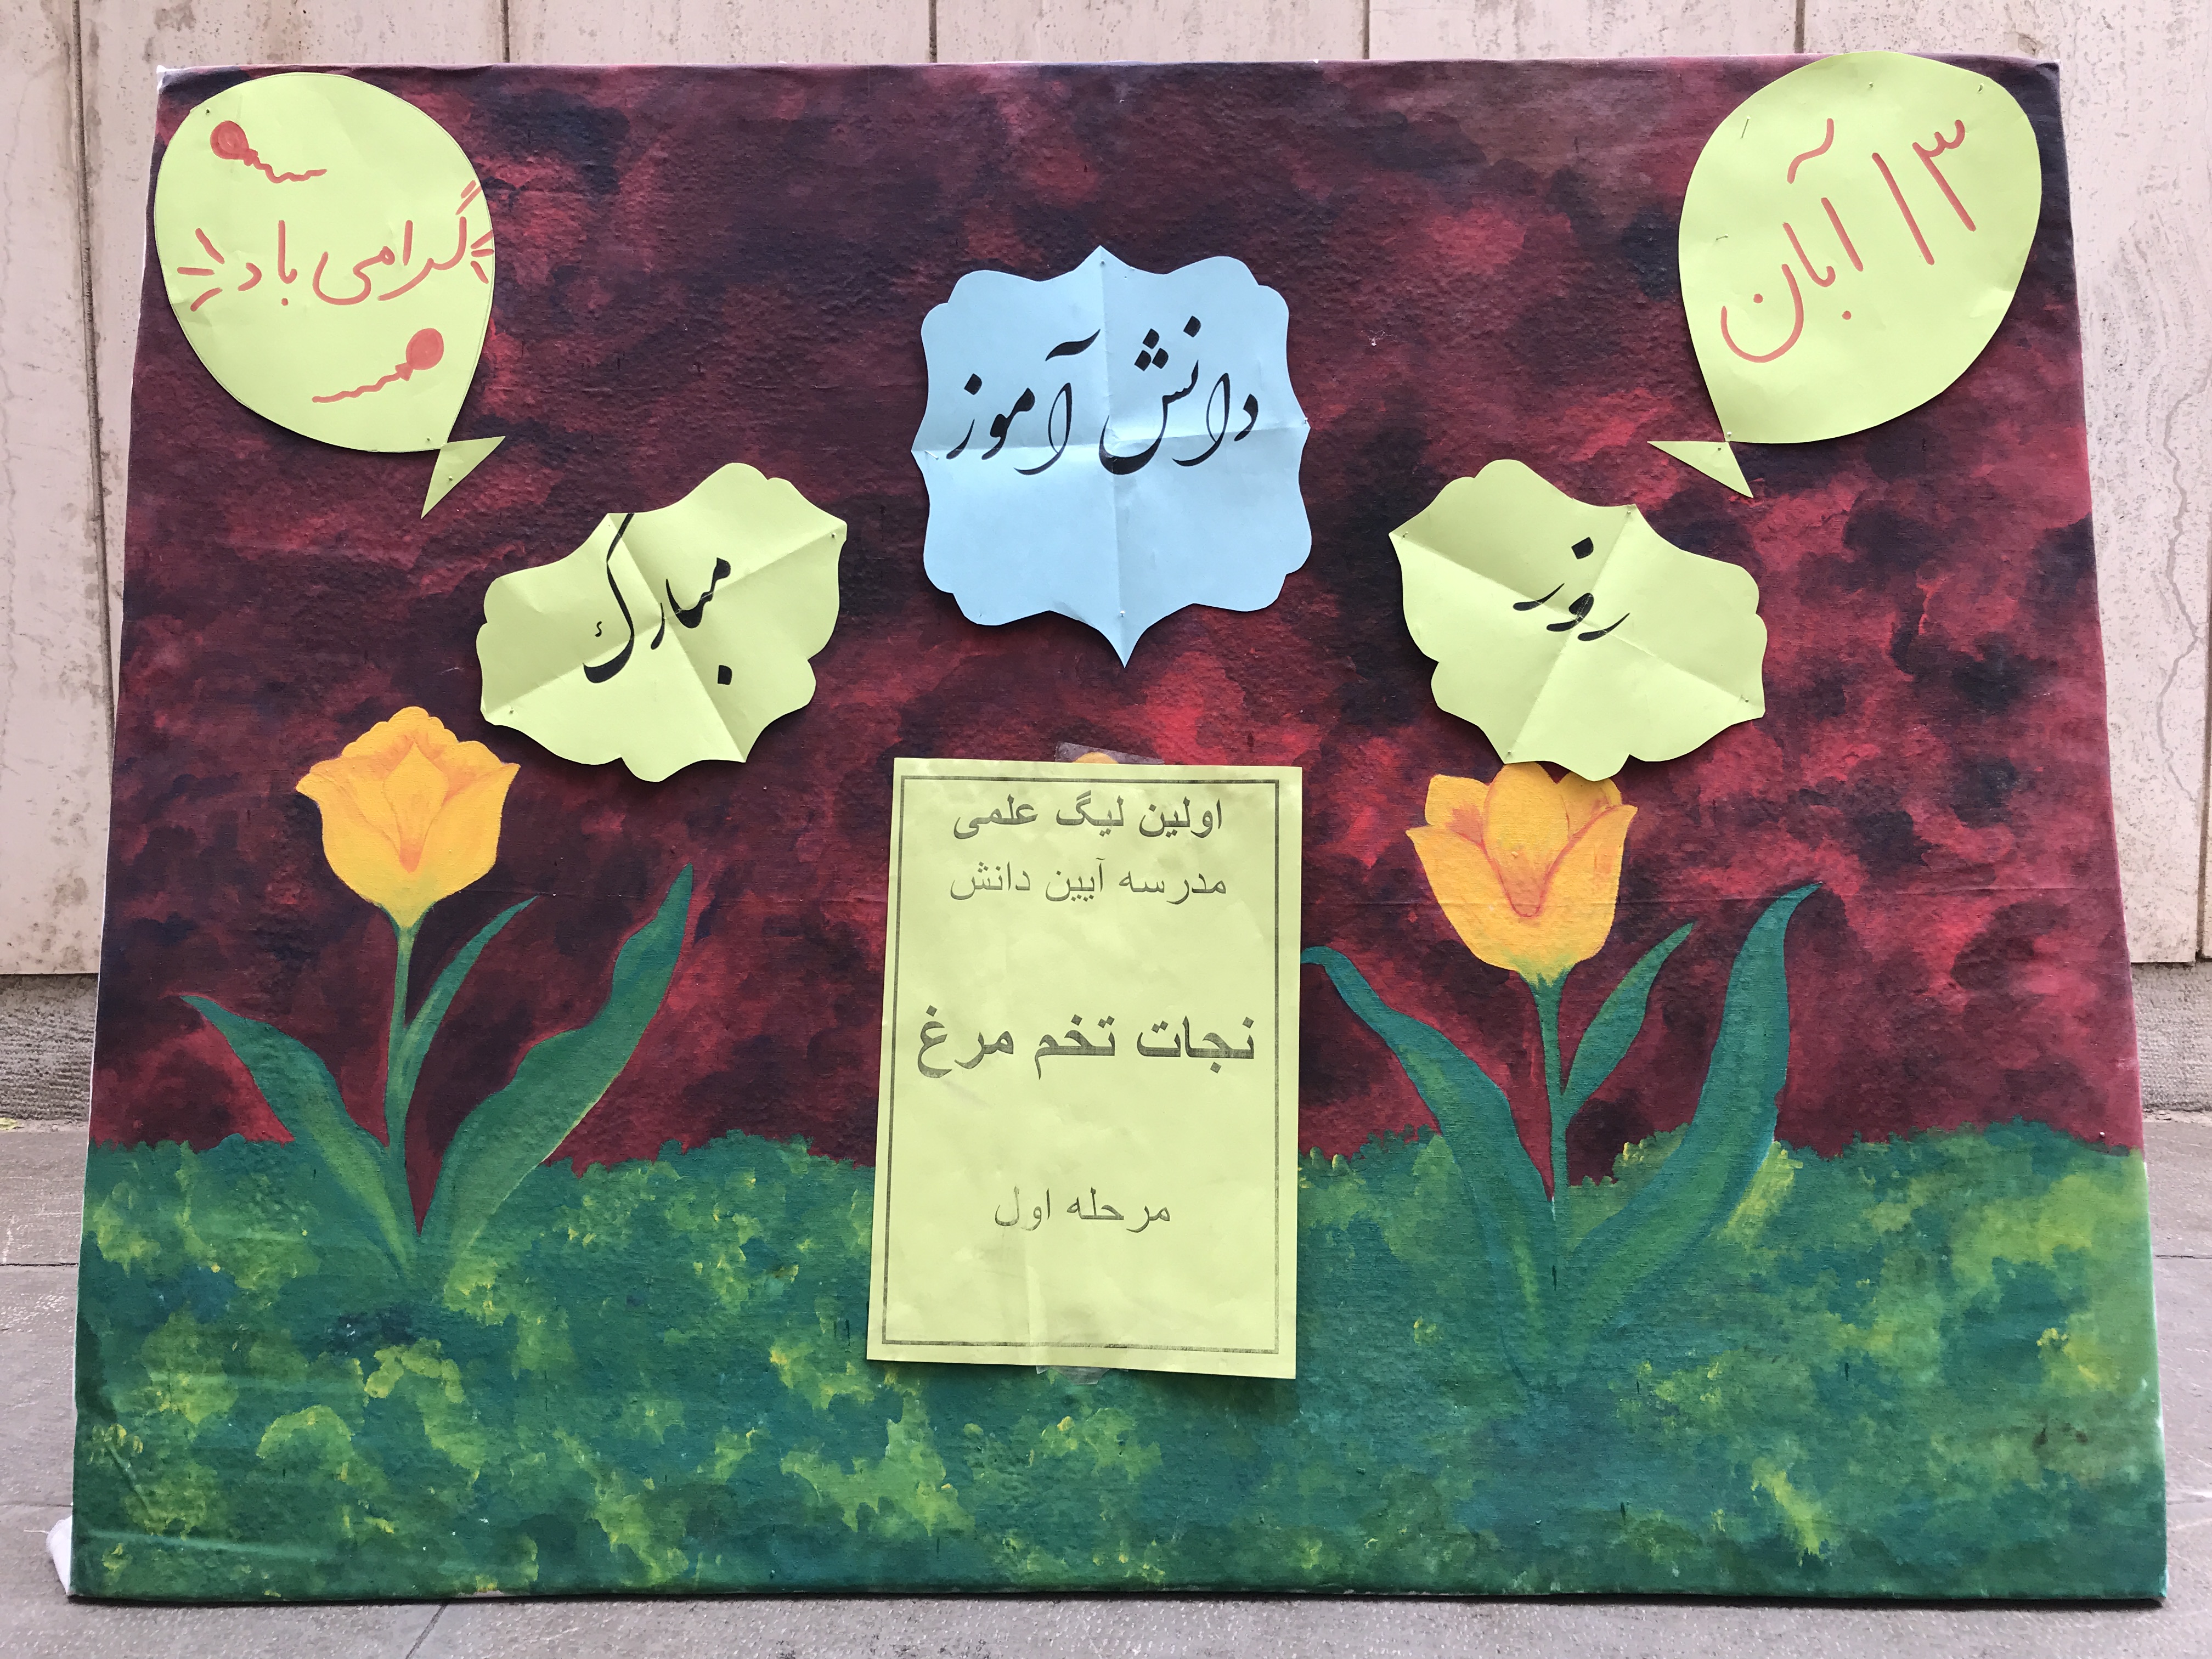 ۱۳ آبان
گرامی باد
روز
دانش آموز
مبارک
اولین لیگ علمی
مدرسه آیین دانش
نجات تخم مرغ
مرحله اول